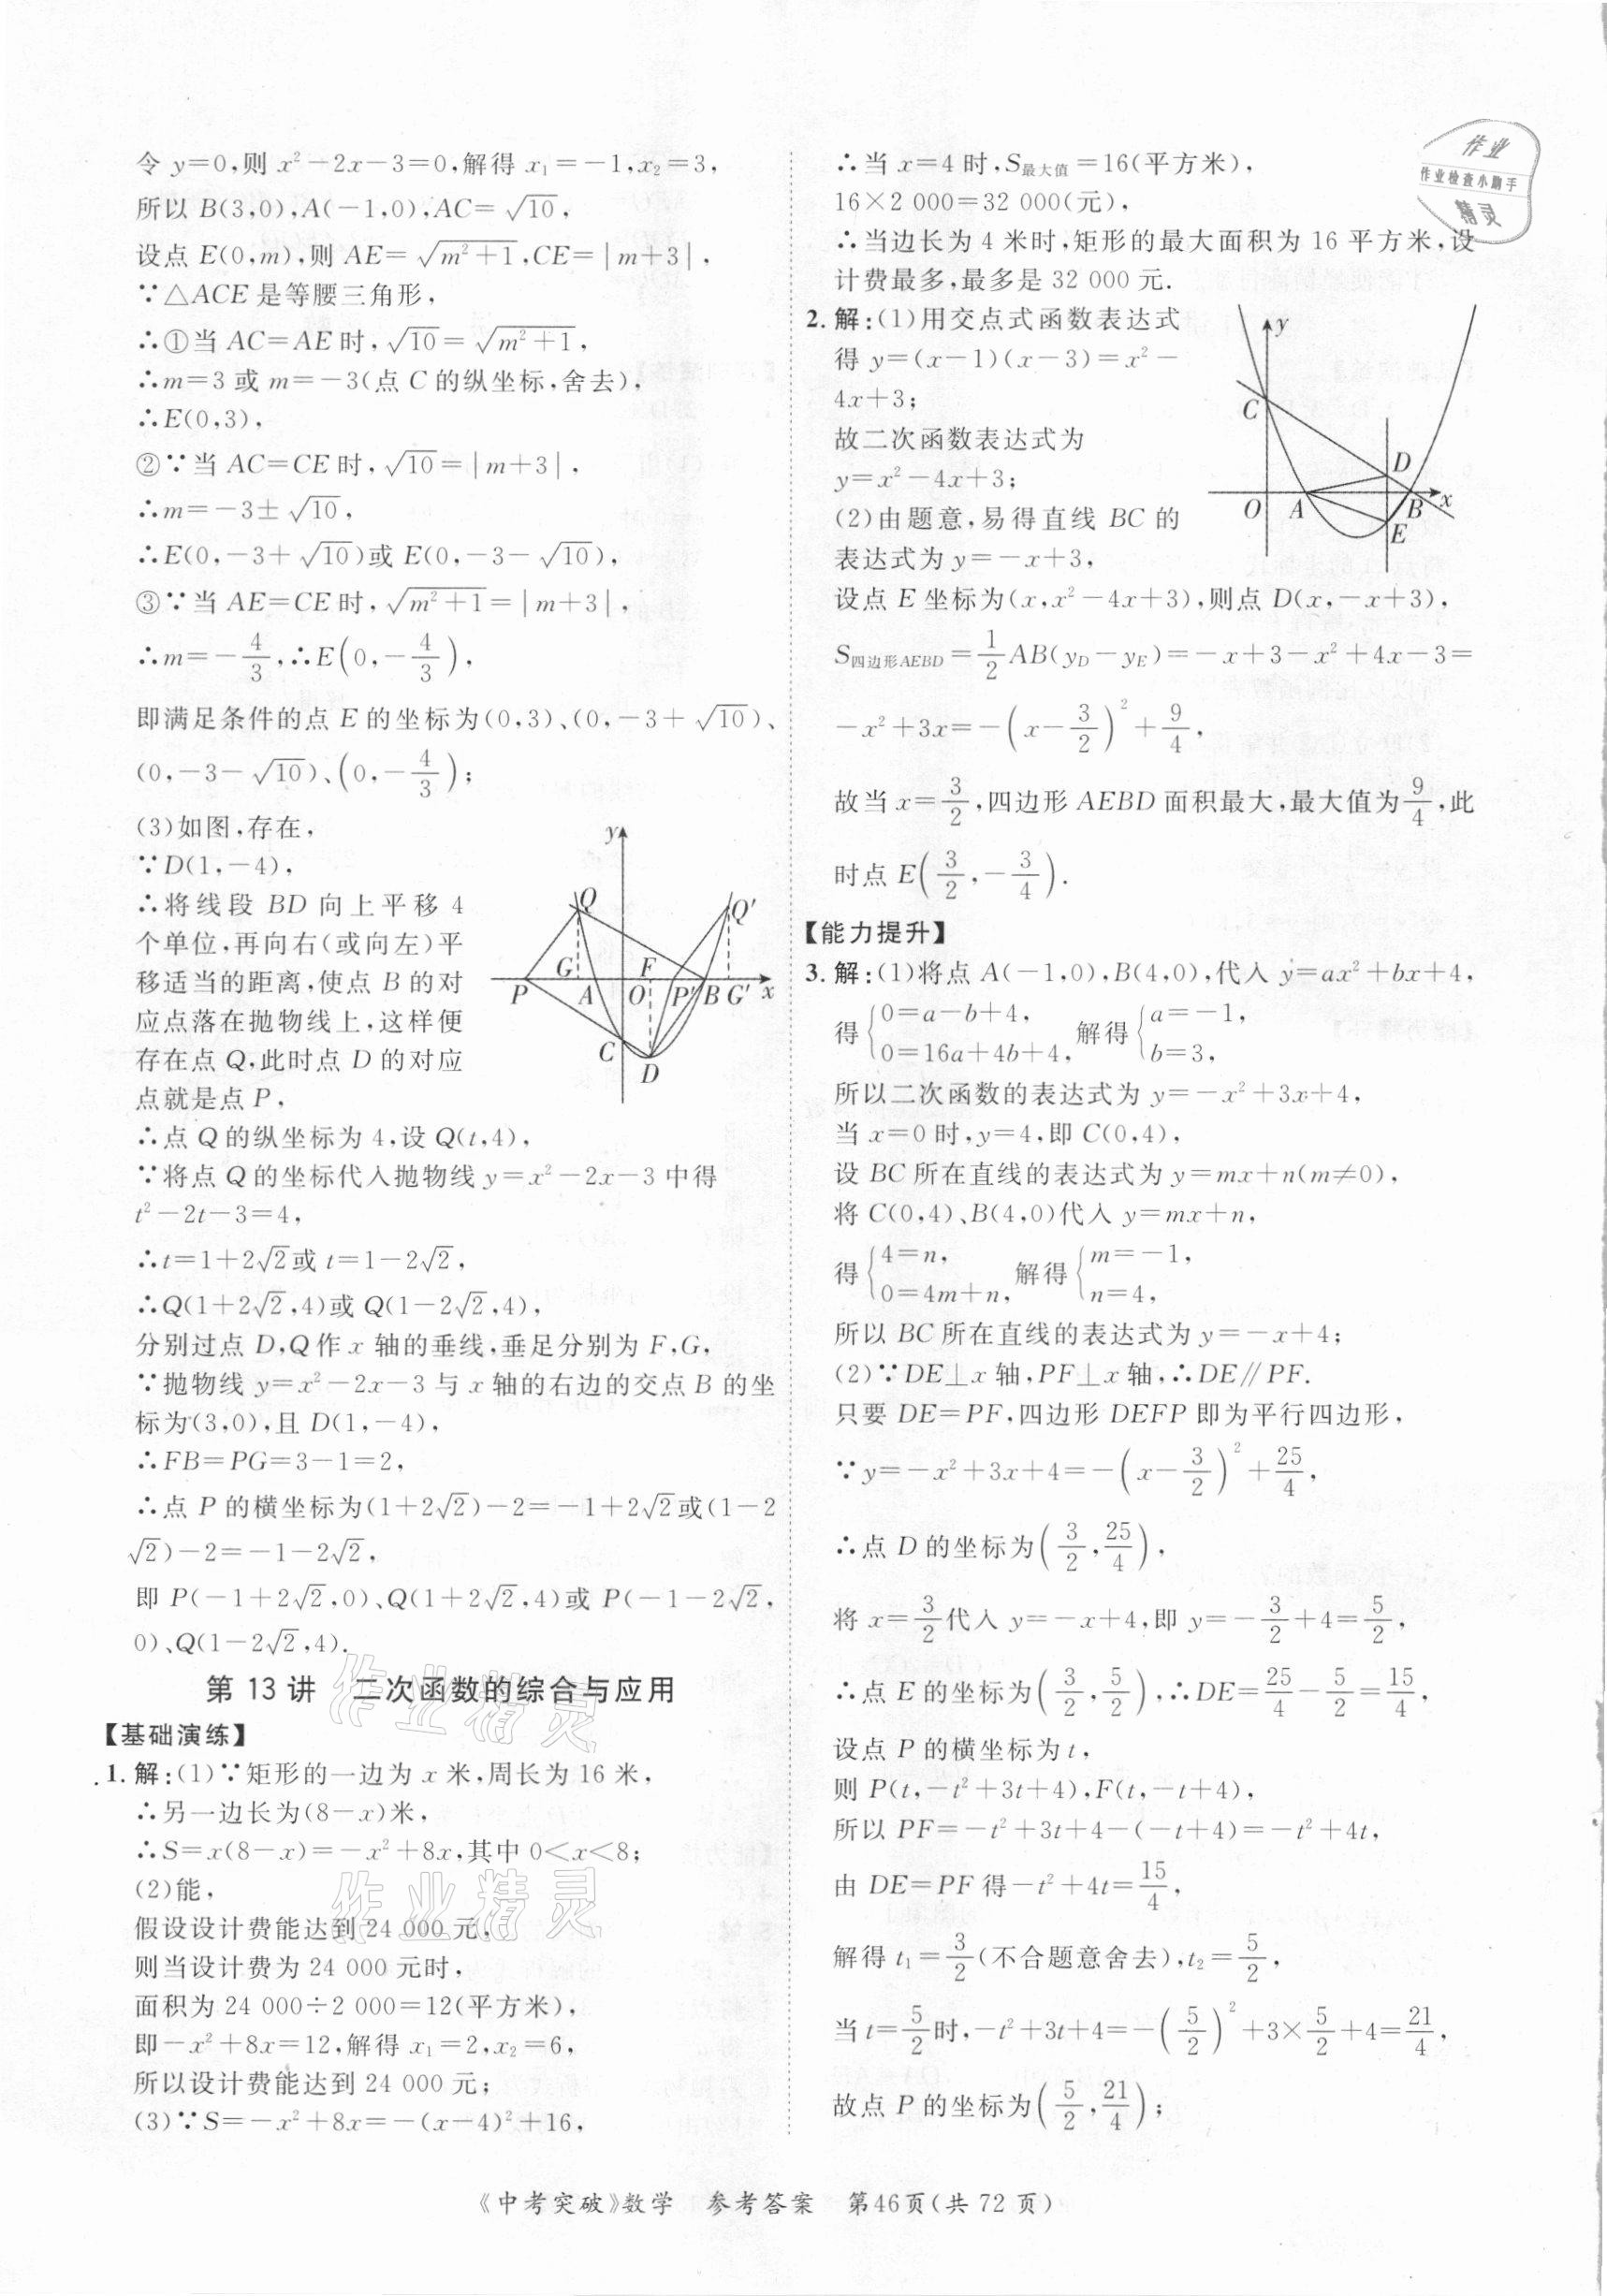 令 y=0,则 x²-2x-3=0,解得 x₁=-1,x₂=3,
所以 B(3,0),A(-1,0),AC=√10,
设点 E(0,m),则 AE=√(m²+1),CE=|m+3|,
∵△ACE 是等腰三角形,
∴①当 AC=AE 时,√10=√(m²+1),
∴m=3 或 m=-3(点 C 的纵坐标,舍去),
∴E(0,3),
②∵当 AC=CE 时,√10=|m+3|,
∴m=-3±√10,
∴E(0,-3+√10)或 E(0,-3-√10),
③∵当 AE=CE 时,√(m²+1)=|m+3|,
∴m=-4/3,∴E(0,-4/3),
即满足条件的点 E 的坐标为(0,3)、(0,-3+√10)、
(0,-3-√10)、(0,-4/3);
(3)如图,存在,
∵D(1,-4),
∴将线段 BD 向上平移 4
个单位,再向右(或向左)平
移适当的距离,使点 B 的对
应点落在抛物线上,这样便
存在点 Q,此时点 D 的对应
点就是点 P,
y
Q
Q′
G
F
P
A
O
P′
B
G′
x
C
D
∴点 Q 的纵坐标为 4,设 Q(t,4),
∵将点 Q 的坐标代入抛物线 y=x²-2x-3 中得
t²-2t-3=4,
∴t=1+2√2或 t=1-2√2,
∴Q(1+2√2,4)或 Q(1-2√2,4),
分别过点 D,Q 作 x 轴的垂线,垂足分别为 F,G,
∵抛物线 y=x²-2x-3 与 x 轴的右边的交点 B 的坐
标为(3,0),且 D(1,-4),
∴FB=PG=3-1=2,
∴点 P 的横坐标为(1+2√2)-2=-1+2√2或(1-2
√2)-2=-1-2√2,
即 P(-1+2√2,0)、Q(1+2√2,4)或 P(-1-2√2,
0)、Q(1-2√2,4).
第 13 讲 二次函数的综合与应用
【基础演练】
1.解:(1)∵矩形的一边为 x 米,周长为 16 米,
∴另一边长为(8-x)米,
∴S=x(8-x)=-x²+8x,其中 0<x<8;
(2)能,
假设设计费能达到 24 000 元,
则当设计费为 24 000 元时,
面积为 24 000÷2 000=12(平方米),
即-x²+8x=12,解得 x₁=2,x₂=6,
所以设计费能达到 24 000 元;
(3)∵S=-x²+8x=-(x-4)²+16,
∴当 x=4 时,S最大值=16(平方米),
16×2 000=32 000(元),
∴当边长为 4 米时,矩形的最大面积为 16 平方米,设
计费最多,最多是 32 000 元.
2.解:(1)用交点式函数表达式
得 y=(x-1)(x-3)=x²-
4x+3;
故二次函数表达式为
y=x²-4x+3;
(2)由题意,易得直线 BC 的
表达式为 y=-x+3,
y
C
D
O
A
B
x
E
设点 E 坐标为(x,x²-4x+3),则点 D(x,-x+3),
S四边形AEBD=1/2AB(yD-yE)=-x+3-x²+4x-3=
-x²+3x=-(x-3/2)²+9/4,
故当 x=3/2,四边形 AEBD 面积最大,最大值为9/4,此
时点 E(3/2,-3/4).
【能力提升】
3.解:(1)将点 A(-1,0),B(4,0),代入 y=ax²+bx+4,
得{0=a-b+4, 0=16a+4b+4,解得{a=-1, b=3,
所以二次函数的表达式为 y=-x²+3x+4,
当 x=0 时,y=4,即 C(0,4),
设 BC 所在直线的表达式为 y=mx+n(m≠0),
将 C(0,4)、B(4,0)代入 y=mx+n,
得{4=n, 0=4m+n,解得{m=-1, n=4,
所以 BC 所在直线的表达式为 y=-x+4;
(2)∵DE⊥x 轴,PF⊥x 轴,∴DE∥PF.
只要 DE=PF,四边形 DEFP 即为平行四边形,
∵y=-x²+3x+4=-(x-3/2)²+25/4,
∴点 D 的坐标为(3/2,25/4),
将 x=3/2代入 y=-x+4,即 y=-3/2+4=5/2,
∴点 E 的坐标为(3/2,5/2),∴DE=25/4-5/2=15/4,
设点 P 的横坐标为 t,
则 P(t,-t²+3t+4),F(t,-t+4),
所以 PF=-t²+3t+4-(-t+4)=-t²+4t,
由 DE=PF 得-t²+4t=15/4,
解得 t₁=3/2(不合题意舍去),t₂=5/2,
当 t=5/2时,-t²+3t+4=-(5/2)²+3×5/2+4=21/4,
故点 P 的坐标为(5/2,21/4);
《中考突破》数学 参考答案 第46页(共 72 页)
作业
作业检查小助手
精灵
作业精灵
作业精灵